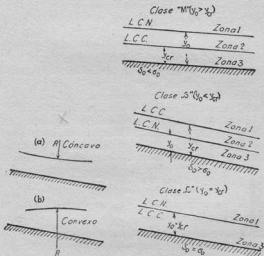 Clase "M" (y₀ > y_cr)
L.C.N. Zona 1
L.C.C. y₀ Zona 2
y_cr Zona 3
S₀ < σ₀
Clase "S" (y₀ < y_cr)
L.C.C. Zona 1
L.C.N. Zona 2
y₀ y_cr Zona 3
S₀ > σ₀
(a) R Cóncavo
(b) Convexo
R
Clase (y₀ = y_cr)
L.C.N. Zona 1
L.C.C.
y₀=y_cr Zona 3
S₀ = σ₀